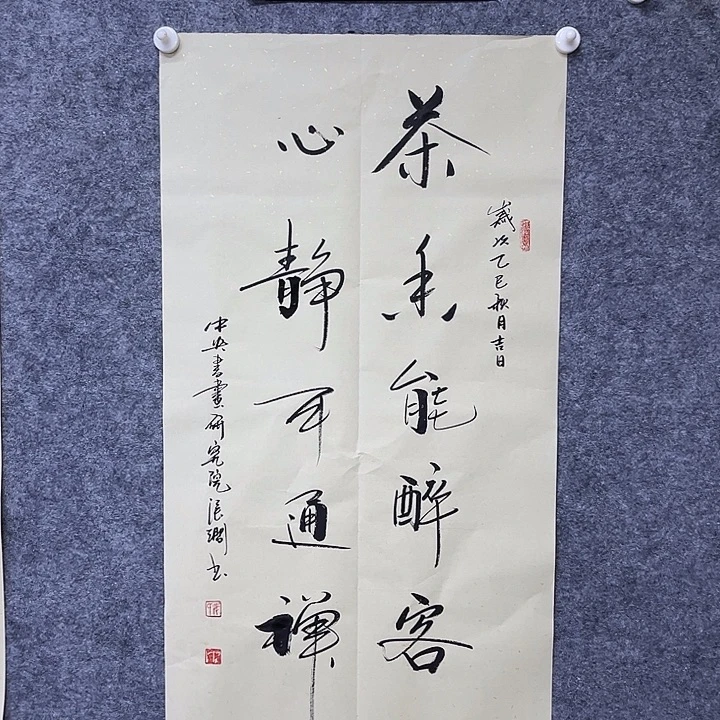 茶香能醉客
心静可通禅
岁次乙巳秋月吉日
中央书画研究院张渊书